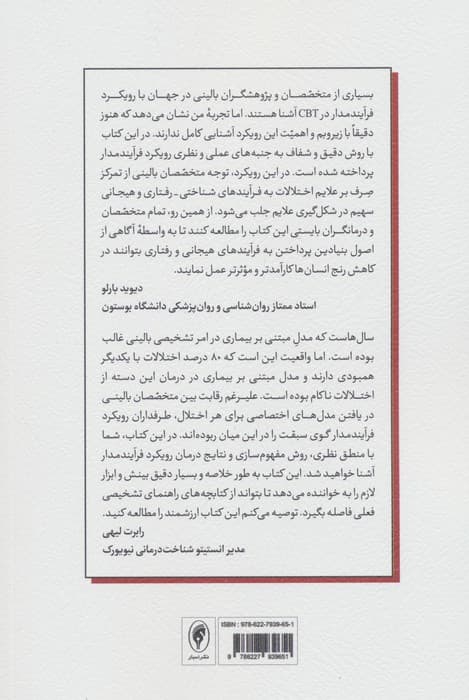 بسیاری از متخصّصان و پژوهشگران بالینی در جهان با رویکرد
فرآیندمدار در CBT آشنا هستند. اما تجربهٔ من نشان می‌دهد که هنوز
دقیقاً با زیروبم و اهمیّت این رویکرد آشنایی کامل ندارند. در این کتاب
با روش دقیق و شفاف به جنبه‌های عملی و نظری رویکرد فرآیندمدار
پرداخته شده است. در این رویکرد، توجه متخصّصان بالینی از تمرکز
صِرف بر علایم اختلالات به فرآیندهای شناختی ـ رفتاری و هیجانی
سهیم در شکل‌گیری علایم جلب می‌شود. از همین رو، تمام متخصّصان
و درمانگران بایستی این کتاب را مطالعه کنند تا به واسطهٔ آگاهی از
اصول بنیادین پرداختن به فرآیندهای هیجانی و رفتاری بتوانند در
کاهش رنج انسان‌ها کارآمدتر و مؤثرتر عمل نمایند.
دیوید بارلو
استاد ممتاز روان‌شناسی و روان‌پزشکی دانشگاه بوستون
سال‌هاست که مدلِ مبتنی بر بیماری در امر تشخیصی بالینی غالب
بوده است. اما واقعیت این است که ۸۰ درصد اختلالات با یکدیگر
همبودی دارند و مدل مبتنی بر بیماری در درمان این دسته از
اختلالات ناکام بوده است. علیرغم رقابت بین متخصّصان بالینی در
در یافتن مدل‌های اختصاصی برای هر اختلال، طرفداران رویکرد
فرآیندمدار گوی سبقت را در این میان ربوده‌اند. در این کتاب، شما
با منطق نظری، روش مفهوم‌سازی و نتایج درمان رویکرد فرآیندمدار
آشنا خواهید شد. این کتاب به طور خلاصه و بسیار دقیق بینش و ابزار
لازم را به خواننده می‌دهد تا بتواند از کتابچه‌های راهنمای تشخیصی
فعلی فاصله بگیرد. توصیه می‌کنم این کتاب ارزشمند را مطالعه کنید.
رابرت لیهی
مدیر انستیتو شناخت‌درمانی نیویورک
ISBN : 978-622-7939-65-1
9 786227 939651
نشر اسبار